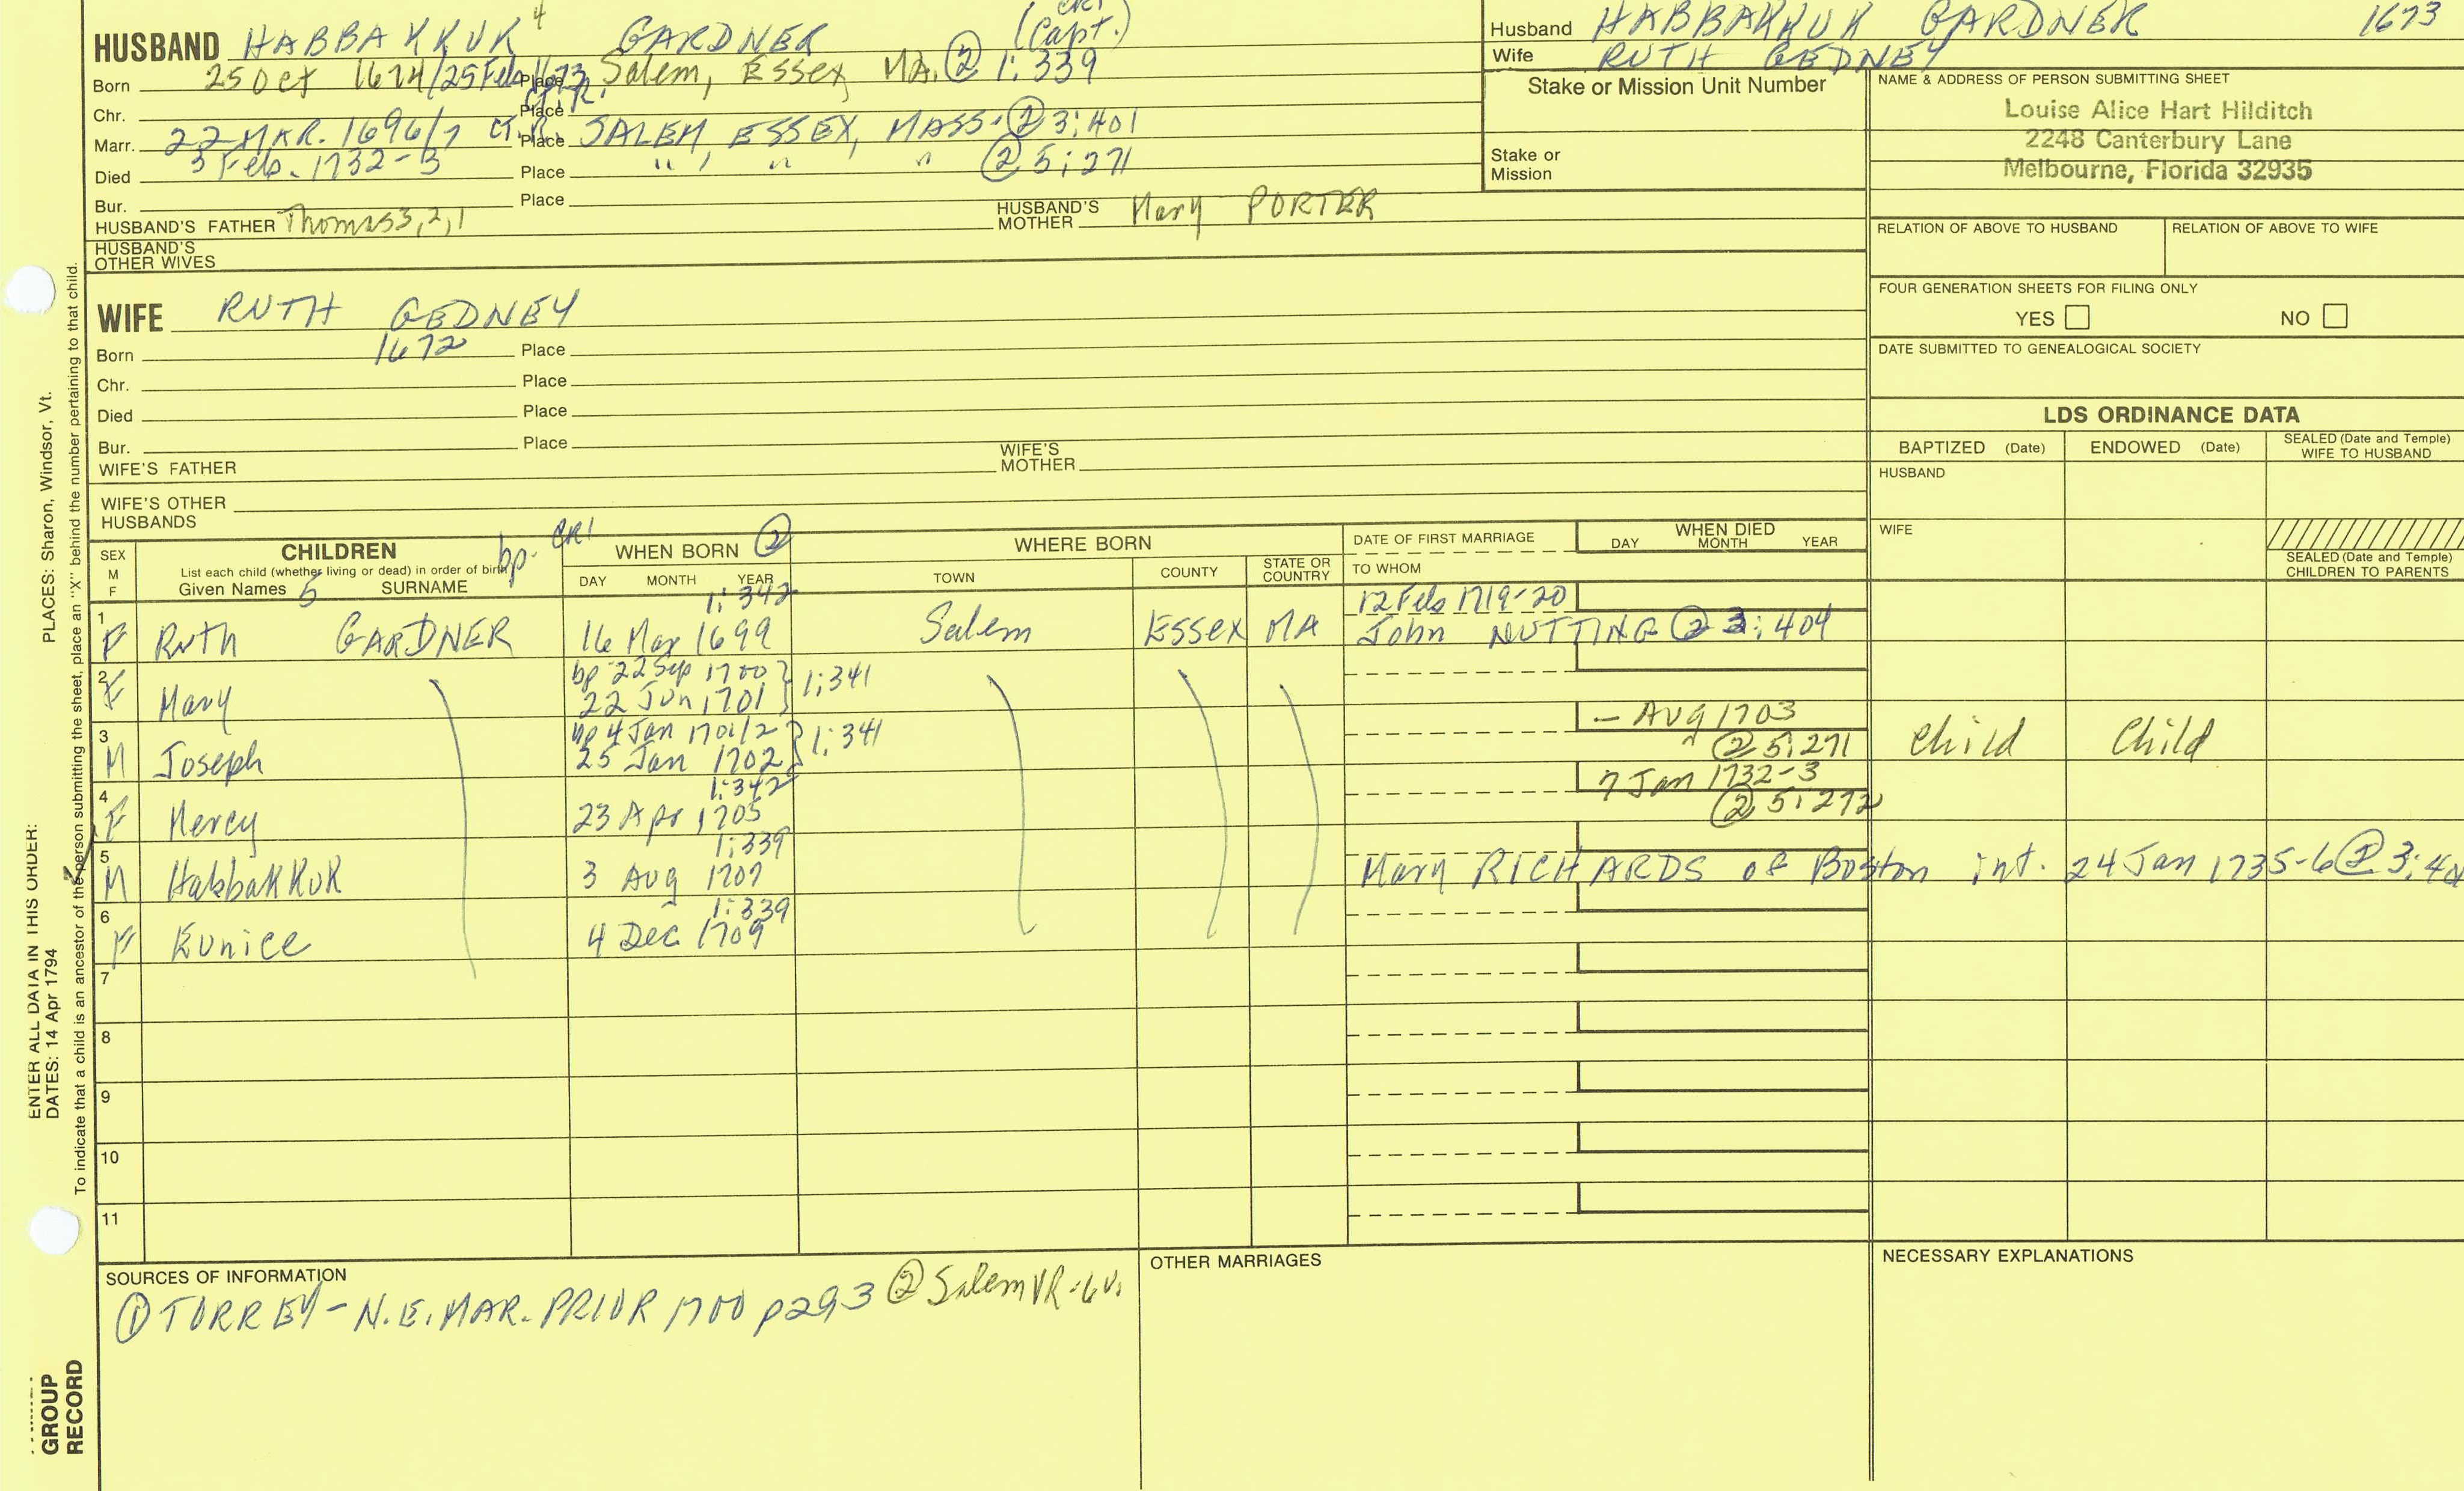 HUSBAND HABBAKKUK 4 GARDNER (Capt.)
Born 25 Oct 1674/25 Feb Place Salem, Essex MA. ② 1:339
Chr. Place
Marr. 22 MAR. 1696/7 CT.R. Place SALEM, ESSEX, MASS. ② 3:401
Died 3 Feb. 1732-3 Place " , " " ② 5:271
Bur. Place
HUSBAND'S FATHER Thomas3,2,1 HUSBAND'S MOTHER Mary PORTER
HUSBAND'S OTHER WIVES
WIFE RUTH GEDNEY
Born 1672 Place
Chr. Place
Died Place
Bur. Place
WIFE'S FATHER WIFE'S MOTHER
WIFE'S OTHER HUSBANDS
Husband HABBAKKUK GARDNER 1673
Wife RUTH GEDNEY
Stake or Mission Unit Number
Stake or Mission
NAME & ADDRESS OF PERSON SUBMITTING SHEET
Louise Alice Hart Hilditch
2248 Canterbury Lane
Melbourne, Florida 32935
RELATION OF ABOVE TO HUSBAND RELATION OF ABOVE TO WIFE
FOUR GENERATION SHEETS FOR FILING ONLY
YES NO
DATE SUBMITTED TO GENEALOGICAL SOCIETY
LDS ORDINANCE DATA
BAPTIZED (Date) ENDOWED (Date) SEALED (Date and Temple) WIFE TO HUSBAND
HUSBAND
WIFE
SEALED (Date and Temple) CHILDREN TO PARENTS
SEX M F
CHILDREN bp. CR1 WHEN BORN ② WHERE BORN DATE OF FIRST MARRIAGE WHEN DIED
List each child (whether living or dead) in order of birth
Given Names 5 SURNAME DAY MONTH YEAR TOWN COUNTY STATE OR COUNTRY TO WHOM DAY MONTH YEAR
1:342 12 Feb 1719-20
1 F Ruth GARDNER 16 Mar 1699 Salem Essex MA John NUTTING ② 3:404
bp 22 Sep 1700
2 F Mary 22 Jun 1701 1:341
bp 4 Jan 1701/2 – Aug 1703
3 M Joseph 25 Jan 1702 1:341 ② 5:271 Child Child
1:342 7 Jan 1732-3
4 F Mercy 23 Apr 1705 ② 5:272
1:339
5 M HabbakKuk 3 Aug 1707 Mary RICHARDS of Boston int. 24 Jan 1735-6 ② 3:40
1:339
6 F Eunice 4 Dec 1709
7
8
9
10
11
SOURCES OF INFORMATION
① TORREY - N.E. MAR. PRIOR 1700 p293 ② Salem VR-6 v.
OTHER MARRIAGES
NECESSARY EXPLANATIONS
ENTER ALL DATA IN THIS ORDER:
DATES: 14 Apr 1794 PLACES: Sharon, Windsor, Vt.
To indicate that a child is an ancestor of the person submitting the sheet, place an "X" behind the number pertaining to that child.
GROUP
RECORD